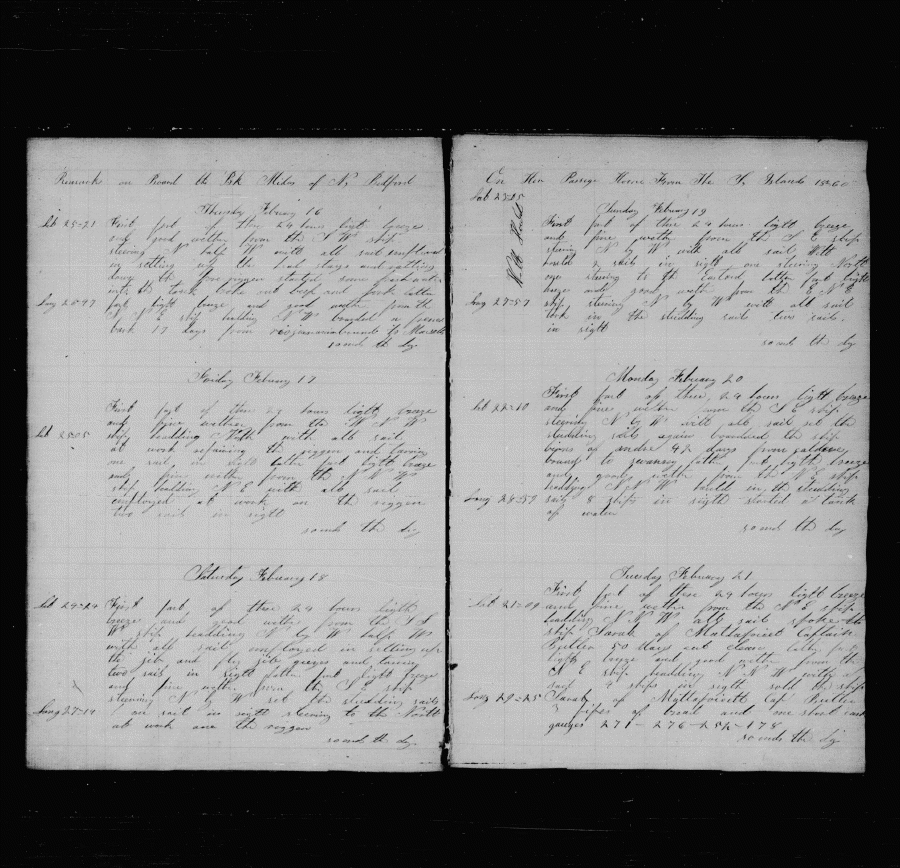 Remark on Board the Brk Midas of N, Bedford
Thursday February 16
Lat 25=21 First part of these 24 hours light breeze
and good wether from the S W ship
steering N half W with all sail employed
in setting up the head stays and
down the
into the tank broke out beef and pork latter
Long 20=47 part light breeze and good wether from the
N N E ship heading N W boarded a french
bark 17 days from bound to
so ends th day
Friday February 17
First part of these 24 hours light breeze
and fine wether from the W N W
Lat 25=05 ship heading North with all sail
at work repairing the riggen and
one sail in sight latter part light breeze
and fine wether from the N N W
ship heading N E with all sail
employed at work on the riggen
two sails in sight
so ends the day
Saturday February 18
Lat 24=24 First part of these 24 hours ligth
breeze and good wether from the S S
W ship heading N by W half W
with all sail employed in setting up
the jib and fly jib guys and
two sails in sight latter part light breeze
and fine wether from the S E ship
steering N by W set the studding sails
Long 27=14 one sail in sight steering to the North
at work one the riggen
so ends th day
On Her Passage Home From The Islands 1860
Lat 23=25
Sunday February 19
First part of these 24 hours light breeze
and fine wether from the S E ship
stering N by W with all sail
& sails in sight one steering North
one stering to the Easterd latter part light
breeze and good wether from the E N E
Long 27=57 ship stering N by W with all sail
tock in the studding sails two sails
in sight
so ends the day
Monday February 20
First part of these 24 hours light breeze
Lat 22=10 and fine wether from the S E ship
stering N by W with all sail set the
studding sails again boarded the ship
of 42 days from
bound to latter part light breeze
and good wether from the N E ship
heading N N W hauled in the studding
Long 28=59 sails 8 ships in sigth stoted a tank
of water
so ends the day
Tuesday February 21
First part of these 24 hours light breeze
Lat 21=09 and fine wether from the N E ship
heading N W all sail spoke the
ship Sarah of Mattapoisett Captain
50 days out clean latter part
light breeze and good wether from the
N E ship heading N N W with all
sail 2 ships in sigth sold the ship
Long 29=25 Sarah of Mattapoisett Cap
3 pipes of and one short cask
gauges 271 - 276 - 252 - 178
so ends the day